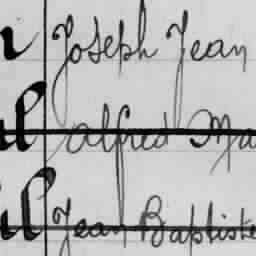 i Joseph Jean
ul alfred Ma
ul Jean Baptiste